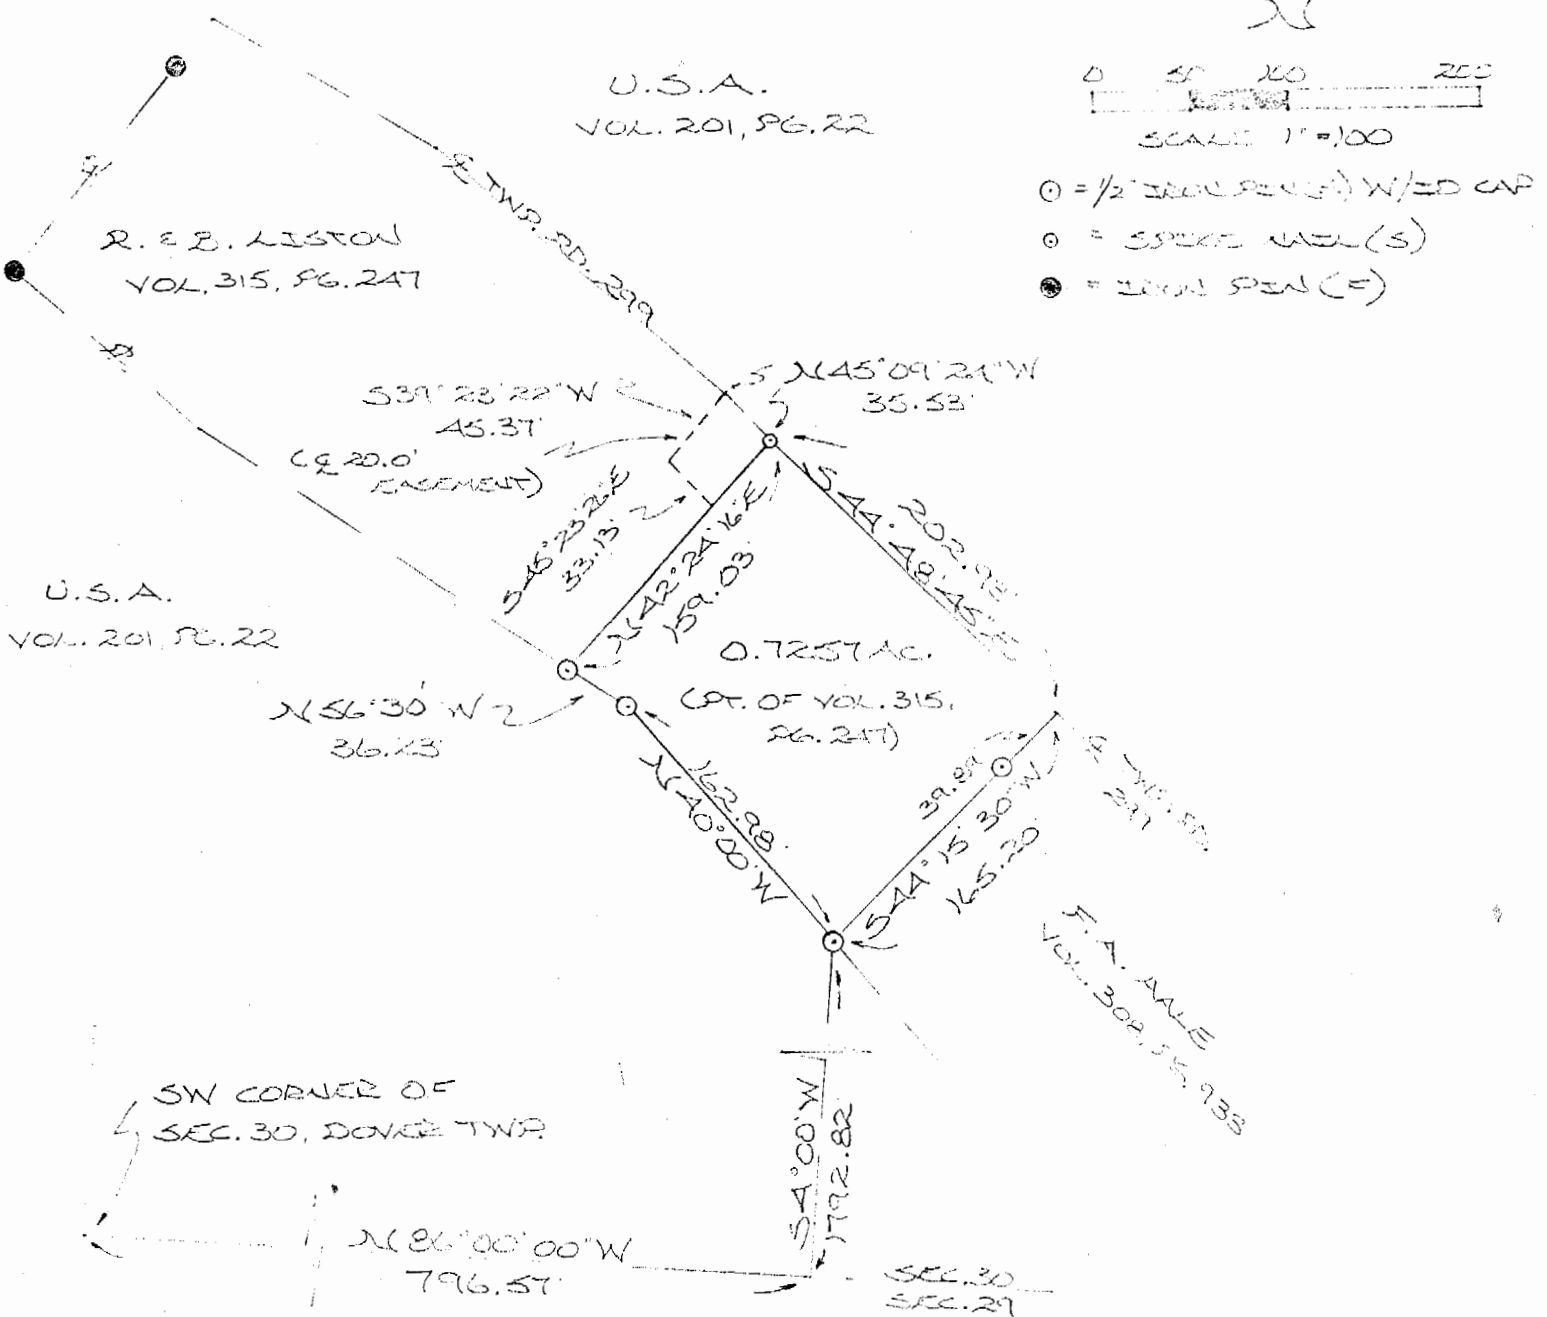 N
0 50 100 200
SCALE 1"=100
⊙ = 1/2" IRON PIN(S) W/ID CAP
⊙ = SPIKE NAIL(S)
● = IRON PIN(F)
U.S.A.
VOL. 201, PG. 22
R. & B. LISTON
VOL. 315, PG. 247
℄ TWP. RD. 299
S39°23'22"W
45.37'
(℄ 20.0'
EASEMENT)
N45°09'24"W
35.53'
S45°23'26"E
33.13'
N42°24'16"E
159.03'
202.98'
S44°48'45"E
U.S.A.
VOL. 201, PG. 22
0.7257 AC.
(PT. OF VOL. 315,
PG. 247)
N56°30'W
36.23'
162.98'
N40°00'W
39.89'
S44°15'30"W
165.20'
℄ TWP. RD.
299
F. A. AALE
VOL. 308, PG. 933
SW CORNER OF
SEC. 30, DOVER TWP.
S4°00'W
1792.82'
N86°00'00"W
796.57'
SEC. 30
SEC. 29